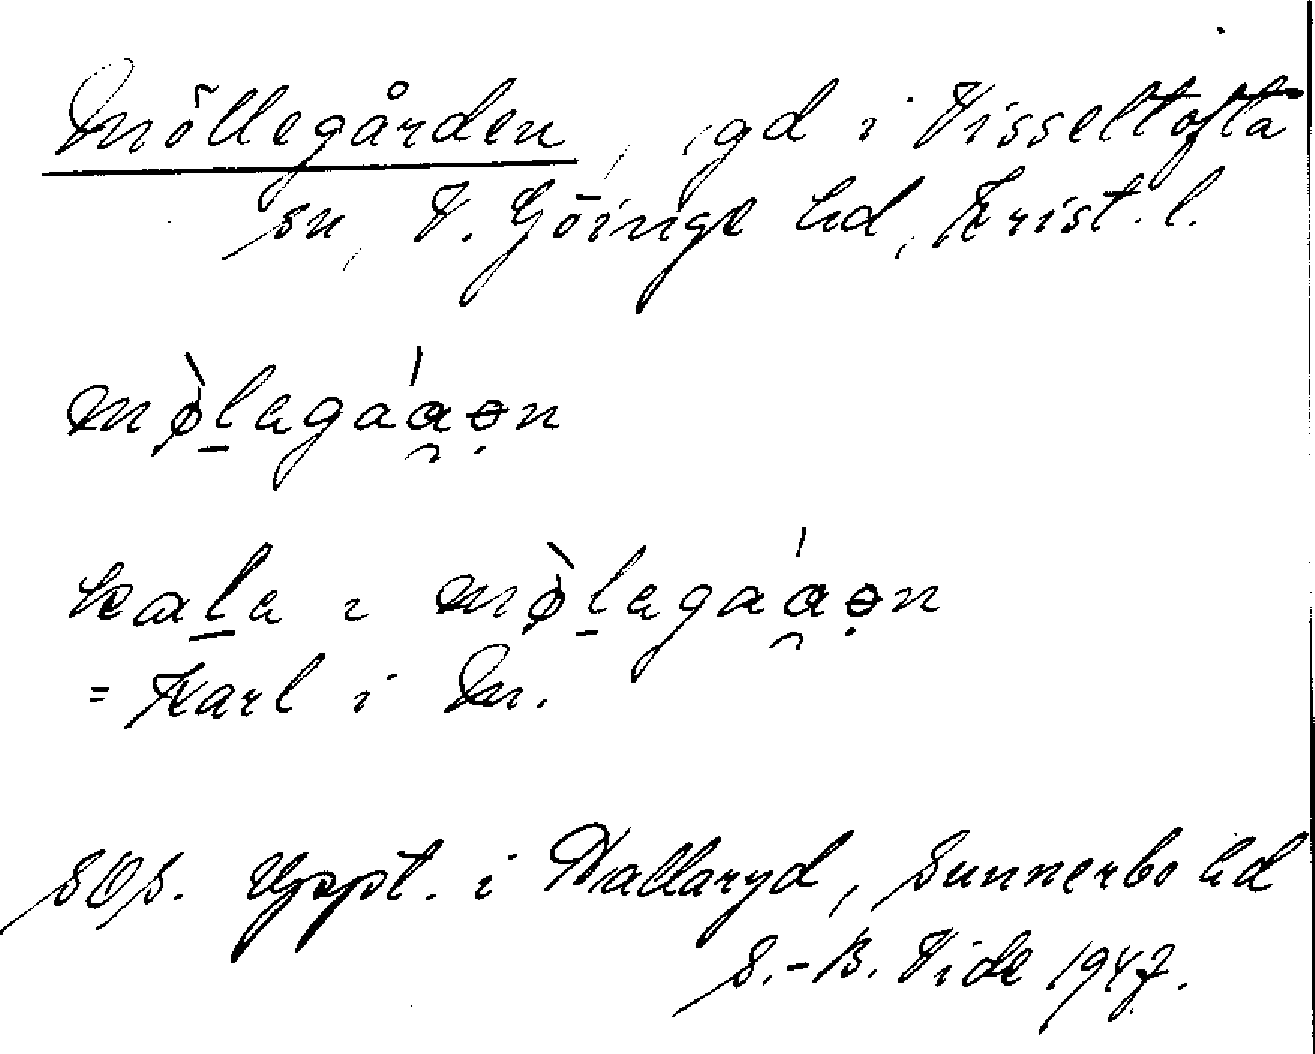 Möllegården, gd i Visseltofta
sn, V. Göinge hd, Krist. l.
mø̀lagaáən
kala i mø̀lagaáən
= Karl i M.
SOS. Uppt. i Hallaryd, Sunnerbo hd
S.-B. Vide 1947.